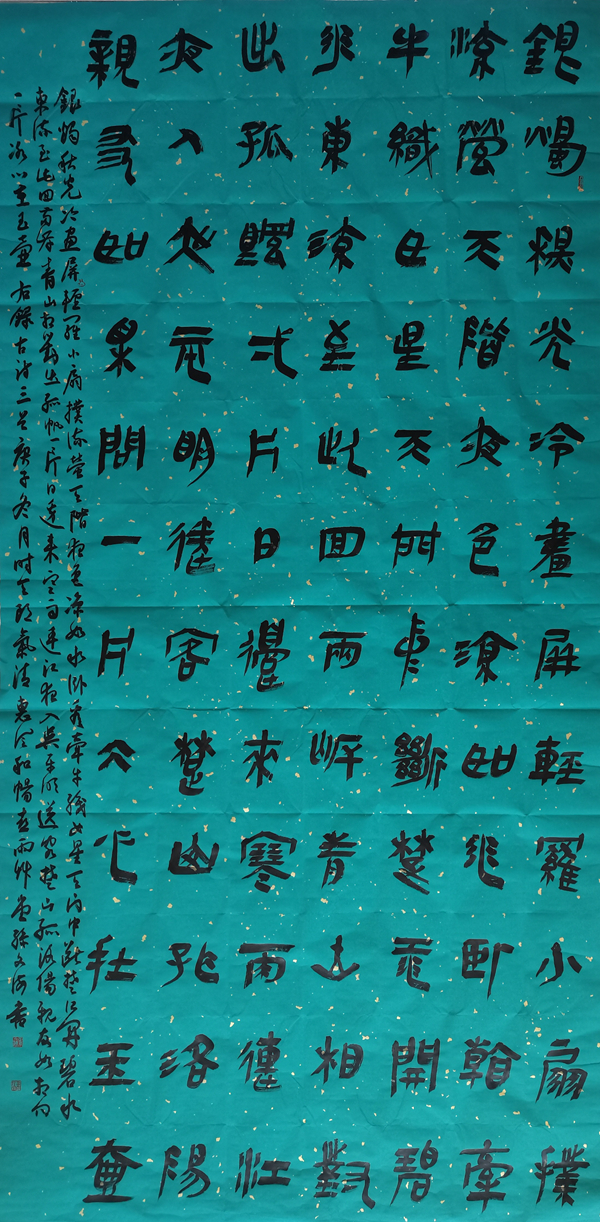 銀燭秋光冷畫屏輕羅小扇撲
流螢天階夜色涼如水卧看牽
牛織女星天門中斷楚江開碧
水東流至此回兩岸青山相對
出孤帆弌片日邊來寒雨連江
夜入吳平明送客楚山孤洛陽
親友如相問一片冰心在玉壺
銀燭秋光冷畫屏輕羅小扇撲流螢天階夜色涼如水卧看牽牛織女星天門中斷楚江開碧水
東流至此回兩岸青山相對出孤帆一片日邊來寒雨連江夜入吳平明送客楚山孤洛陽親友如相問
一片冰心在玉壺右錄古詩三首庚子冬月時天朗氣清惠風和暢春雨草堂孫文海書